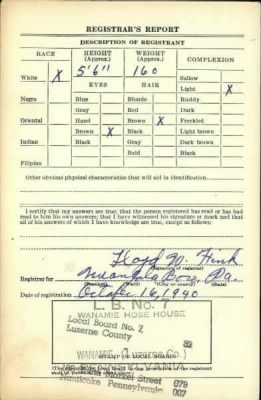 REGISTRAR'S REPORT
DESCRIPTION OF REGISTRANT
RACE HEIGHT (Approx.) WEIGHT (Approx.) COMPLEXION
White X 5'6" 160 Sallow
Light X
EYES HAIR
Negro Blue Blonde Ruddy
Gray Red Dark
Oriental Hazel Brown X Freckled
Brown X Black Light brown
Indian Black Gray Dark brown
Bald Black
Filipino
Other obvious physical characteristics that will aid in identification
I certify that my answers are true; that the person registered has read or has had
read to him his own answers; that I have witnessed his signature or mark and that
all of his answers of which I have knowledge are true, except as follows:
Lloyd W. Fink
(Signature of registrar)
Registrar for Boro, Pa.
(City or county) (State)
Date of registration October 16, 1940
L. B. No. 7
WANAMIE HOSE HOUSE
Local Board No. 7
Luzerne County 82
WANAMIE (Luzerne Co.)
(STAMP OF LOCAL BOARD)
Market Street 079
Nanticoke Pennsylvania 007